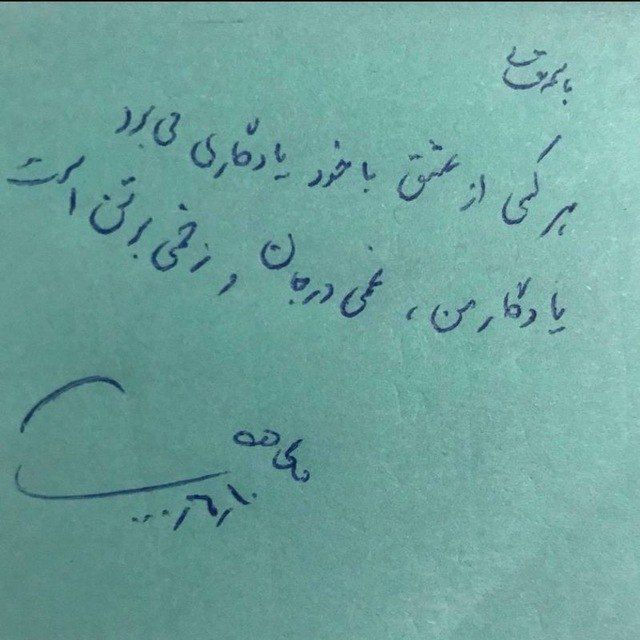 با عشق
هر کس از عشق با خود یادگاری می برد
یادگار من، غمی در جان و زخمی بر تن است